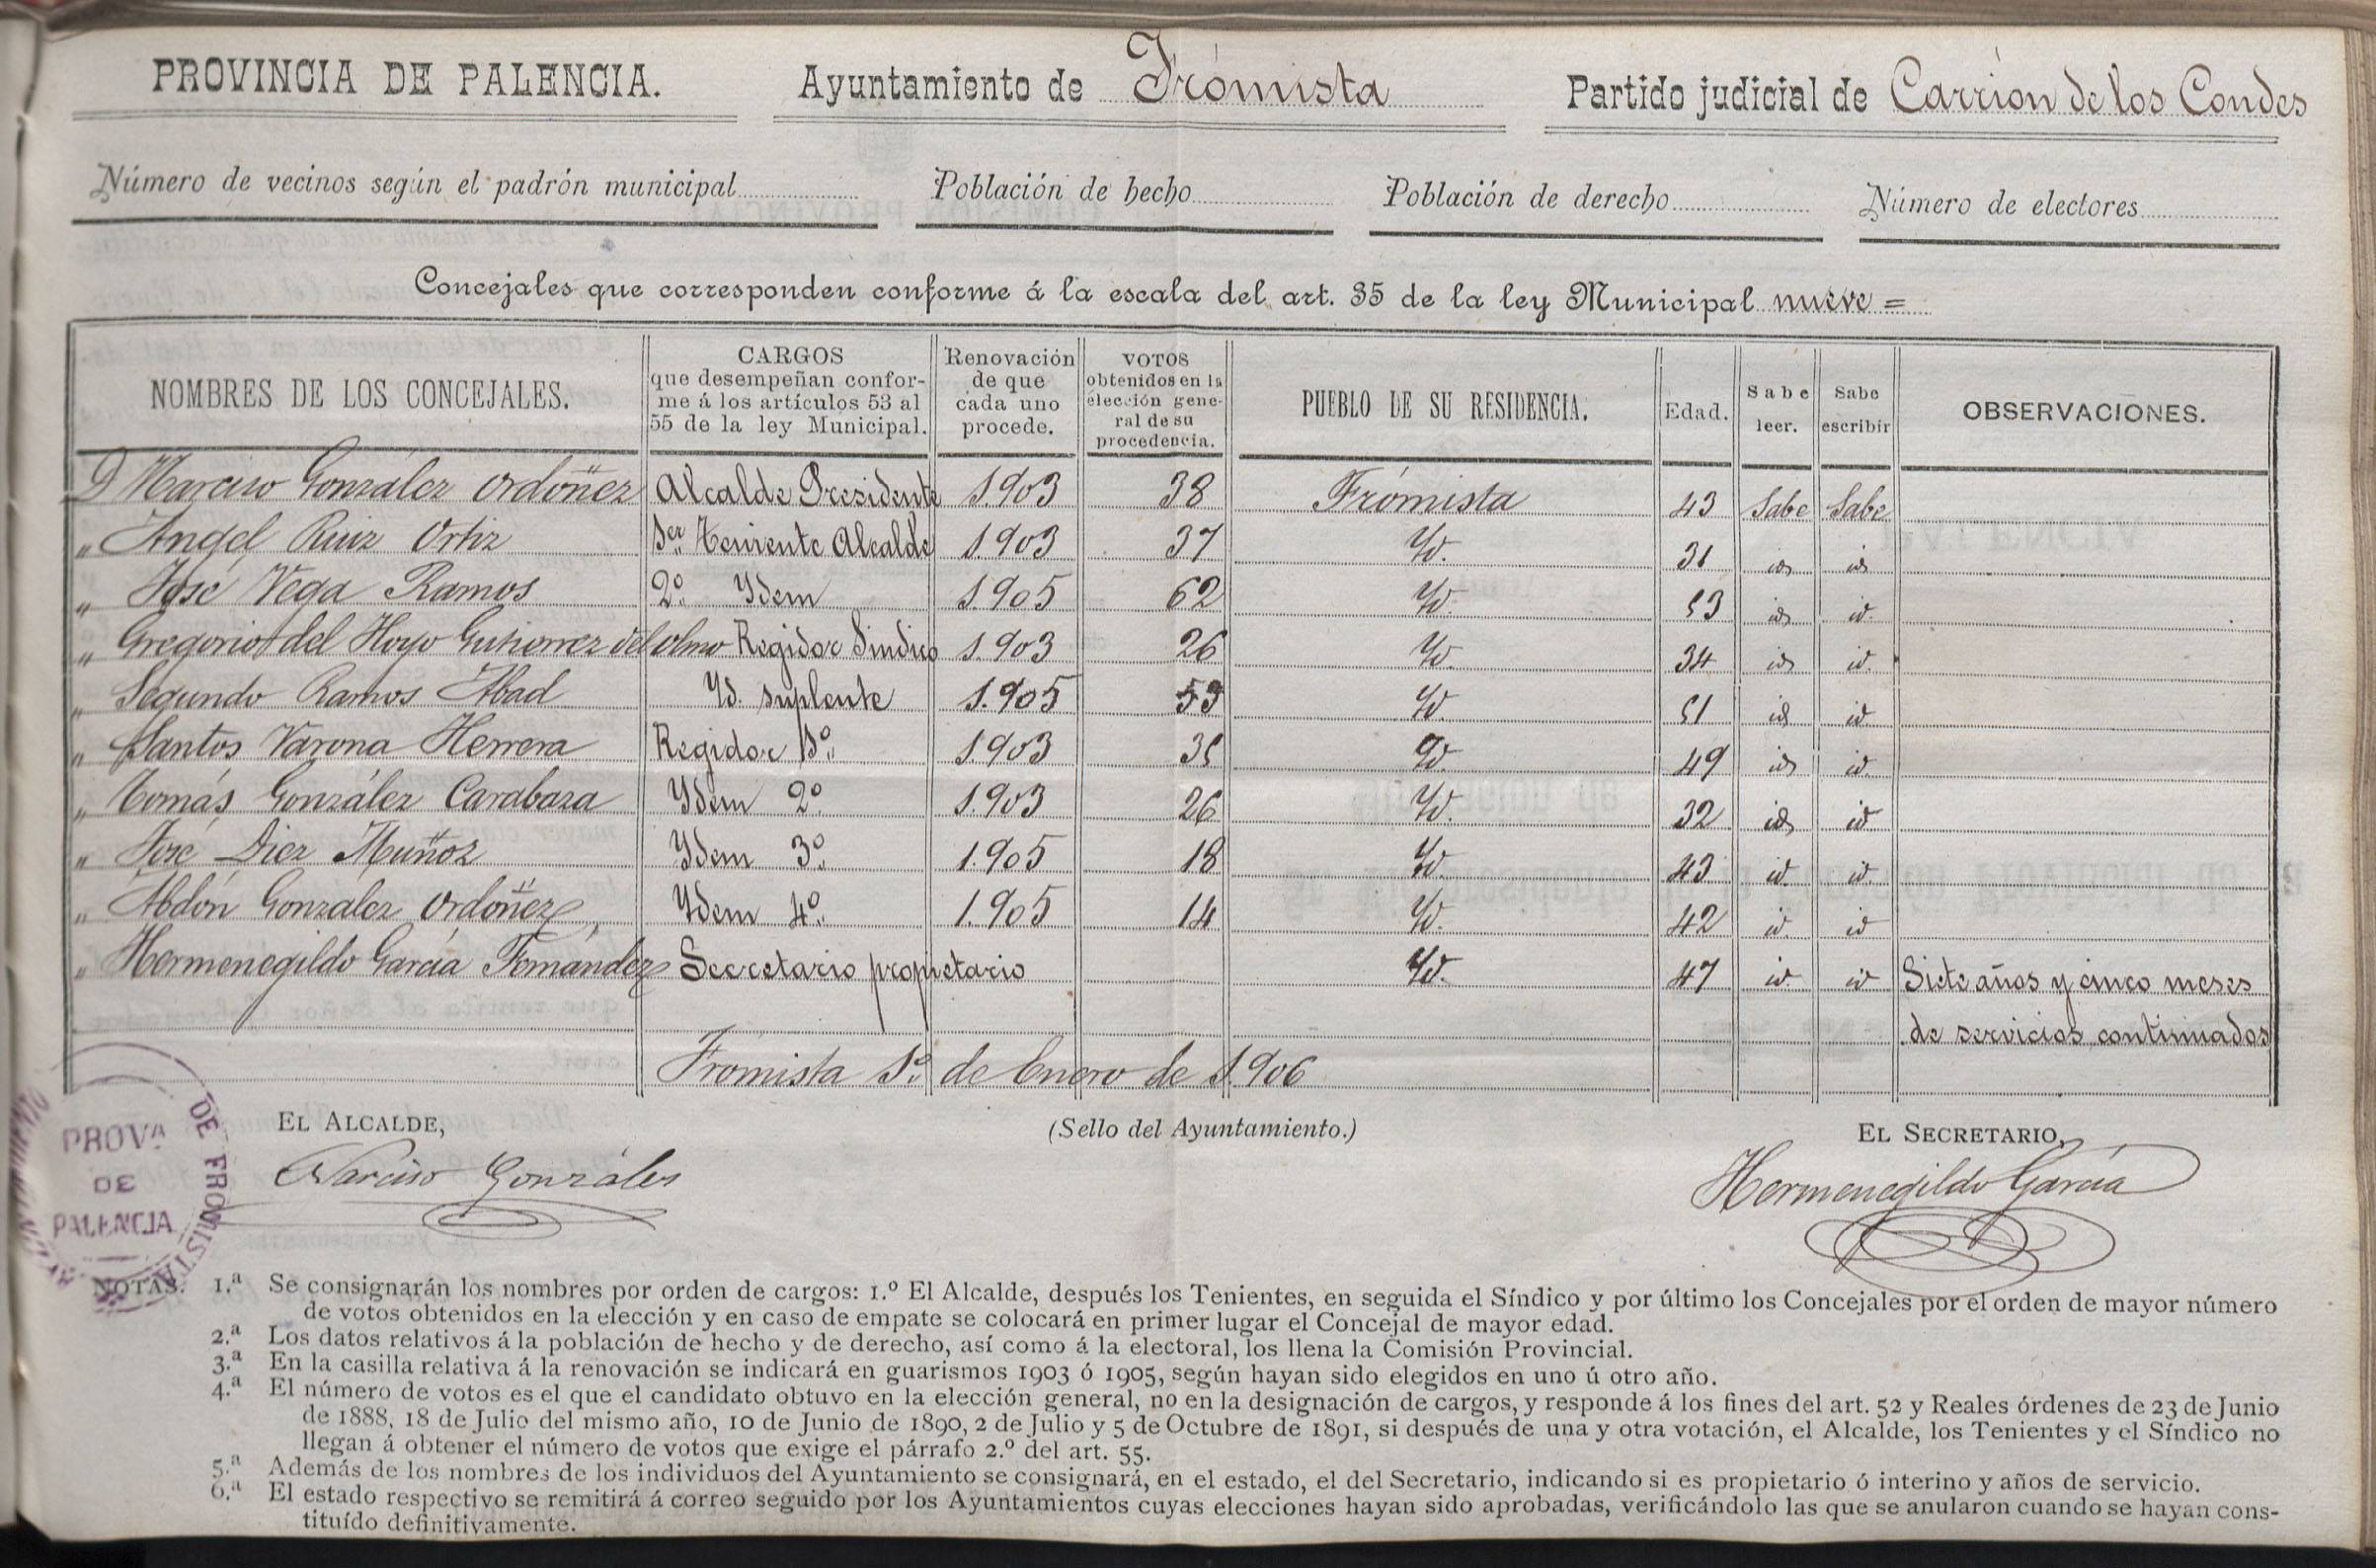 PROVINCIA DE PALENCIA. Ayuntamiento de Frómista Partido judicial de Carrión de los Condes
Número de vecinos según el padrón municipal Población de hecho Población de derecho Número de electores
Concejales que corresponden conforme á la escala del art. 35 de la ley Municipal nueve =
NOMBRES DE LOS CONCEJALES. CARGOS que desempeñan conforme á los artículos 53 al 55 de la ley Municipal. Renovación de que cada uno procede. VOTOS obtenidos en la elección general de su procedencia. PUEBLO DE SU RESIDENCIA. Edad. Sabe leer. Sabe escribir OBSERVACIONES.
D Narciso González Ordóñez Alcalde Presidente 1.903 38 Frómista 43 Sabe Sabe
" Ángel Ruiz Ortiz 1er Teniente Alcalde 1.903 37 Yd. 31 id id
" José Vega Ramos 2º Ydem 1.905 62 Yd. 53 id id
" Gregorio del Hoyo Gutierrez del olmo Regidor Sindico 1.903 26 Yd. 34 id id.
" Segundo Ramos Abad Yd. suplente 1.905 59 Yd. 51 id id
" Santos Varona Herrera Regidor 1º 1.903 35 Yd. 49 id id.
" Tomás González Carabaza Ydem 2º 1.903 26 Yd. 32 id id
" José Diez Muñoz Ydem 3º 1.905 18 Yd. 43 id. id.
" Abdón Gonzalez Ordóñez Ydem 4º 1.905 14 Yd. 42 id. id
" Hermenegildo García Fernández Secretario propietario Yd. 47 id. id Siete años y cinco meses
de servicios continuados
Frómista 1º de Enero de 1.906
EL ALCALDE, (Sello del Ayuntamiento.) EL SECRETARIO,
Narciso Gonzáles Hermenegildo García
DE FROMISTA
PROVA
DE
PALENCIA
NOTAS. 1.ª Se consignarán los nombres por orden de cargos: 1.º El Alcalde, después los Tenientes, en seguida el Síndico y por último los Concejales por el orden de mayor número
de votos obtenidos en la elección y en caso de empate se colocará en primer lugar el Concejal de mayor edad.
2.ª Los datos relativos á la población de hecho y de derecho, así como á la electoral, los llena la Comisión Provincial.
3.ª En la casilla relativa á la renovación se indicará en guarismos 1903 ó 1905, según hayan sido elegidos en uno ú otro año.
4.ª El número de votos es el que el candidato obtuvo en la elección general, no en la designación de cargos, y responde á los fines del art. 52 y Reales órdenes de 23 de Junio
de 1888, 18 de Julio del mismo año, 10 de Junio de 1890, 2 de Julio y 5 de Octubre de 1891, si después de una y otra votación, el Alcalde, los Tenientes y el Síndico no
llegan á obtener el número de votos que exige el párrafo 2.º del art. 55.
5.ª Además de los nombres de los individuos del Ayuntamiento se consignará, en el estado, el del Secretario, indicando si es propietario ó interino y años de servicio.
6.ª El estado respectivo se remitirá á correo seguido por los Ayuntamientos cuyas elecciones hayan sido aprobadas, verificándolo las que se anularon cuando se hayan cons-
tituído definitivamente.